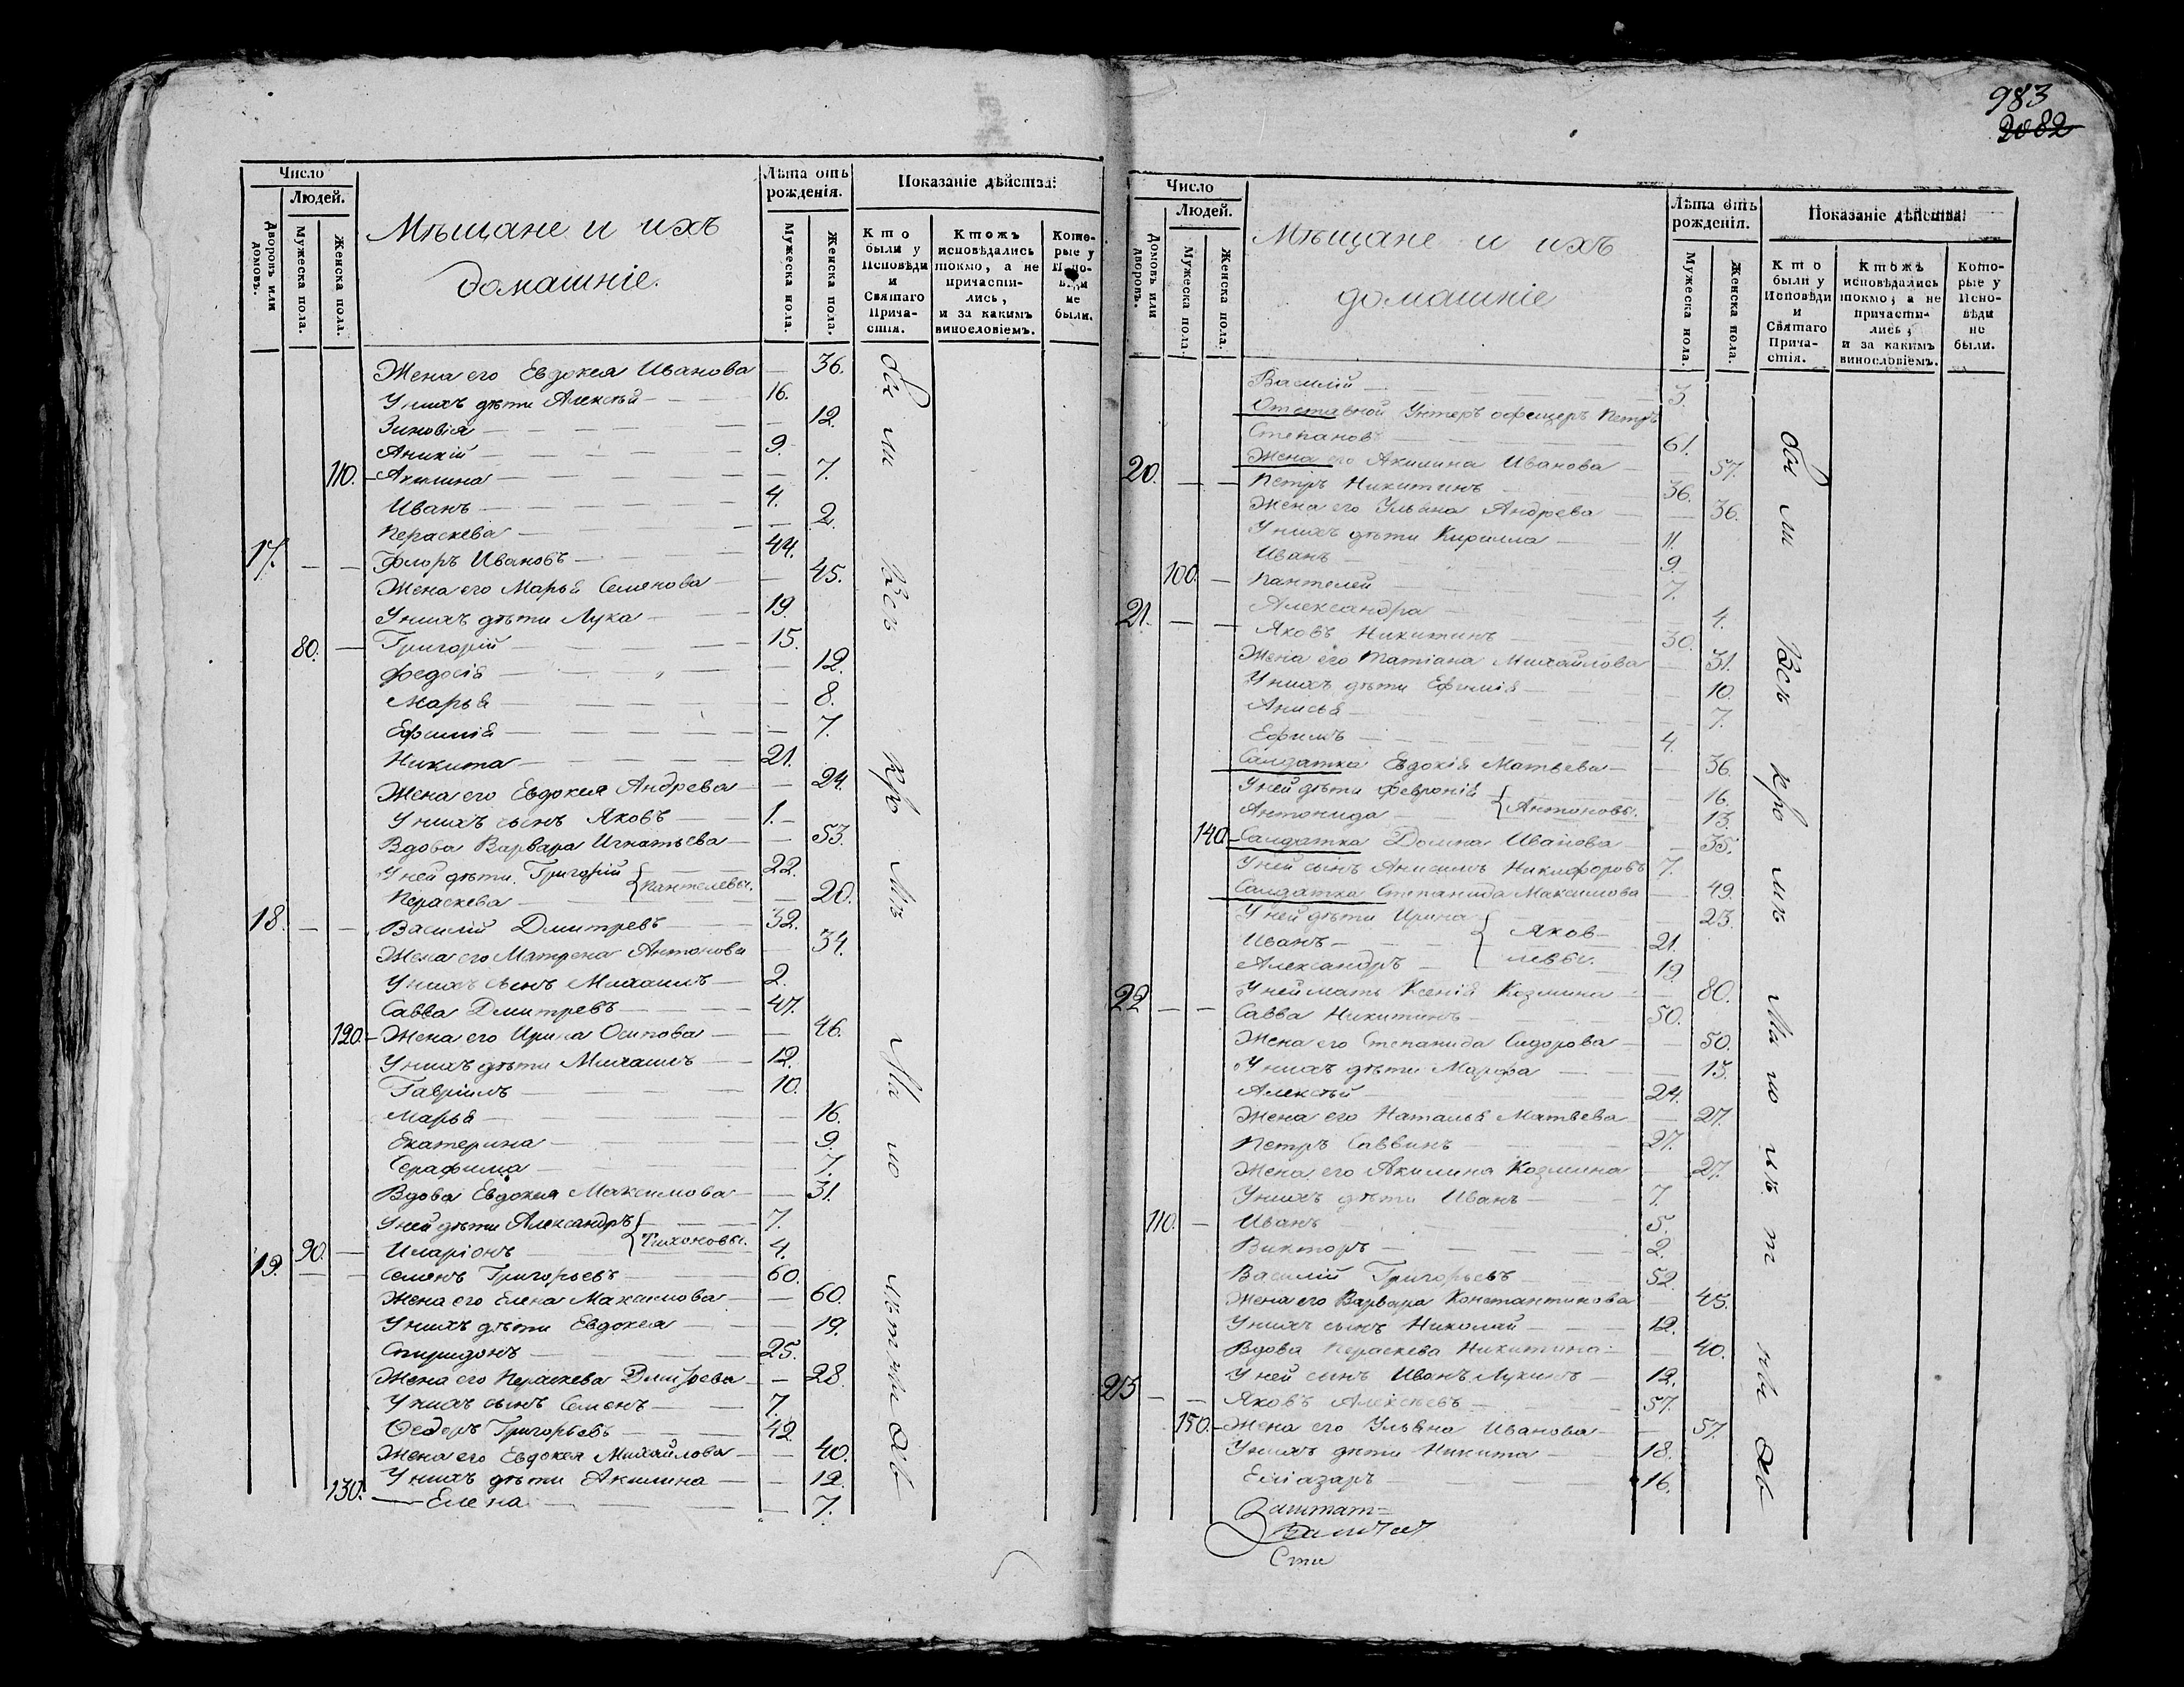 983
2082
Число
Людей.
Дворовъ или домовъ.
Мужеска пола.
Женска пола.
Мѣщане и ихъ
домашніе.
Лѣта отъ
рожденія.
Мужеска пола.
Женска пола.
Показаніе дѣйства:
Кто были у Исповѣди и Святаго Прича-стія.
Ктожъ исповѣдались токмо, а не причасти-лись, и за какимъ винословіемъ.
Кото-рые у Испо-вѣди не были.
Жена его Евдокея Иванова — 36.
У нихъ дѣти Алексѣй — 16.
Зиновія — 12.
Аникій — 9.
110. — Акилина — 7.
Иванъ — 4.
Пераскева — 2.
17. — — Флоръ Ивановъ — 44.
Жена его Марья Семенова — 45.
У нихъ дѣти Лука — 19.
80. — Григорій — 15.
Федосія — 12.
Марья — 8.
Ефимія — 7.
Никита — 21.
Жена его Евдокея Андрева — 24.
У нихъ сынъ Яковъ — 1.
Вдова Варвара Игнатьева — 53.
У ней дѣти Григорій { Пантелевы. 22.
Пераскева — 20.
18. — — Василій Дмитревъ — 32.
Жена его Матрена Антонова — 34.
У нихъ сынъ Михаилъ — 2.
Савва Дмитревъ — 47.
120. — Жена его Ирина Осипова — 46.
У нихъ дѣти Михаилъ — 12.
Гавріилъ — 10.
Марья — 16.
Екатерина — 9.
Серафима — 7.
Вдова Евдокея Максимова — 31.
У ней дѣти Александръ { Тихоновы. 7.
90. — Иларіонъ — 4.
19. — — Семенъ Григорьевъ — 60.
Жена его Елена Максимова — 60.
У нихъ дѣти Евдокея — 19.
Спиридонъ — 25.
Жена его Пераскева Дмитрева — 28.
У нихъ сынъ Семенъ — 7.
Ѳедоръ Григорьевъ — 42.
Жена его Евдокея Михайлова — 40.
У нихъ дѣти Акилина — 12.
130. — Елена — 7.
Число
Людей.
Домовъ или дворовъ.
Мужеска пола.
Женска пола.
Мѣщане и ихъ
домашніе
Лѣта отъ
рожденія.
Мужеска пола.
Женска пола.
Показаніе дѣйства:
Кто были у Исповѣди и Святаго Прича-стія.
Ктожъ исповѣдались токмо, а не причасти-лись, и за какимъ винословіемъ.
Кото-рые у Испо-вѣди не были.
Василій — 3.
Отставной Унтеръ офицеръ Петръ
Степановъ — 61.
Жена его Акилина Иванова — 57.
20. — — Петръ Никитинъ — 36.
Жена его Ульяна Андрева — 36.
У нихъ дѣти Кирилла — 11.
Иванъ — 9.
100. — Пантелей — 7.
Александра — 4.
21. — — Яковъ Никитинъ — 30.
Жена его Татіана Михайлова — 31.
У нихъ дѣти Ефимія — 10.
Анисья — 7.
Ефимъ — 4.
Салдатка Евдокія Матвева — 36.
У ней дѣти Февронія { Антоновы. 16.
Антонида — 13.
140. — Салдатка Домна Иванова — 35.
У ней сынъ Анисимъ Никифоровъ 7.
Салдатка Степанида Максимова — 49.
У ней дѣти Ирина { Яков- 23.
Иванъ — левы. 21.
Александръ — 19.
У ней мать Ксенія Козмина — 80.
22 — — Савва Никитинъ — 50.
Жена его Степанида Сидорова — 50.
У нихъ дѣти Марфа — 13.
Алексѣй — 24.
Жена его Наталья Матвева — 27.
Петръ Саввинъ — 27.
Жена его Акилина Козмина — 27.
У нихъ дѣти Иванъ — 7.
110. — Иванъ — 5.
Викторъ — 2.
Василій Григорьевъ — 52.
Жена его Варвара Константинова 45.
У нихъ сынъ Николай — 12.
Вдова Пераскева Никитина — 40.
У ней сынъ Иванъ Лукинъ — 12.
23 — — Яковъ Алексѣевъ — 57.
150. — Жена его Ульяна Иванова — 57.
У нихъ дѣти Никита — 18.
Еліазаръ — 16.
Заштат=